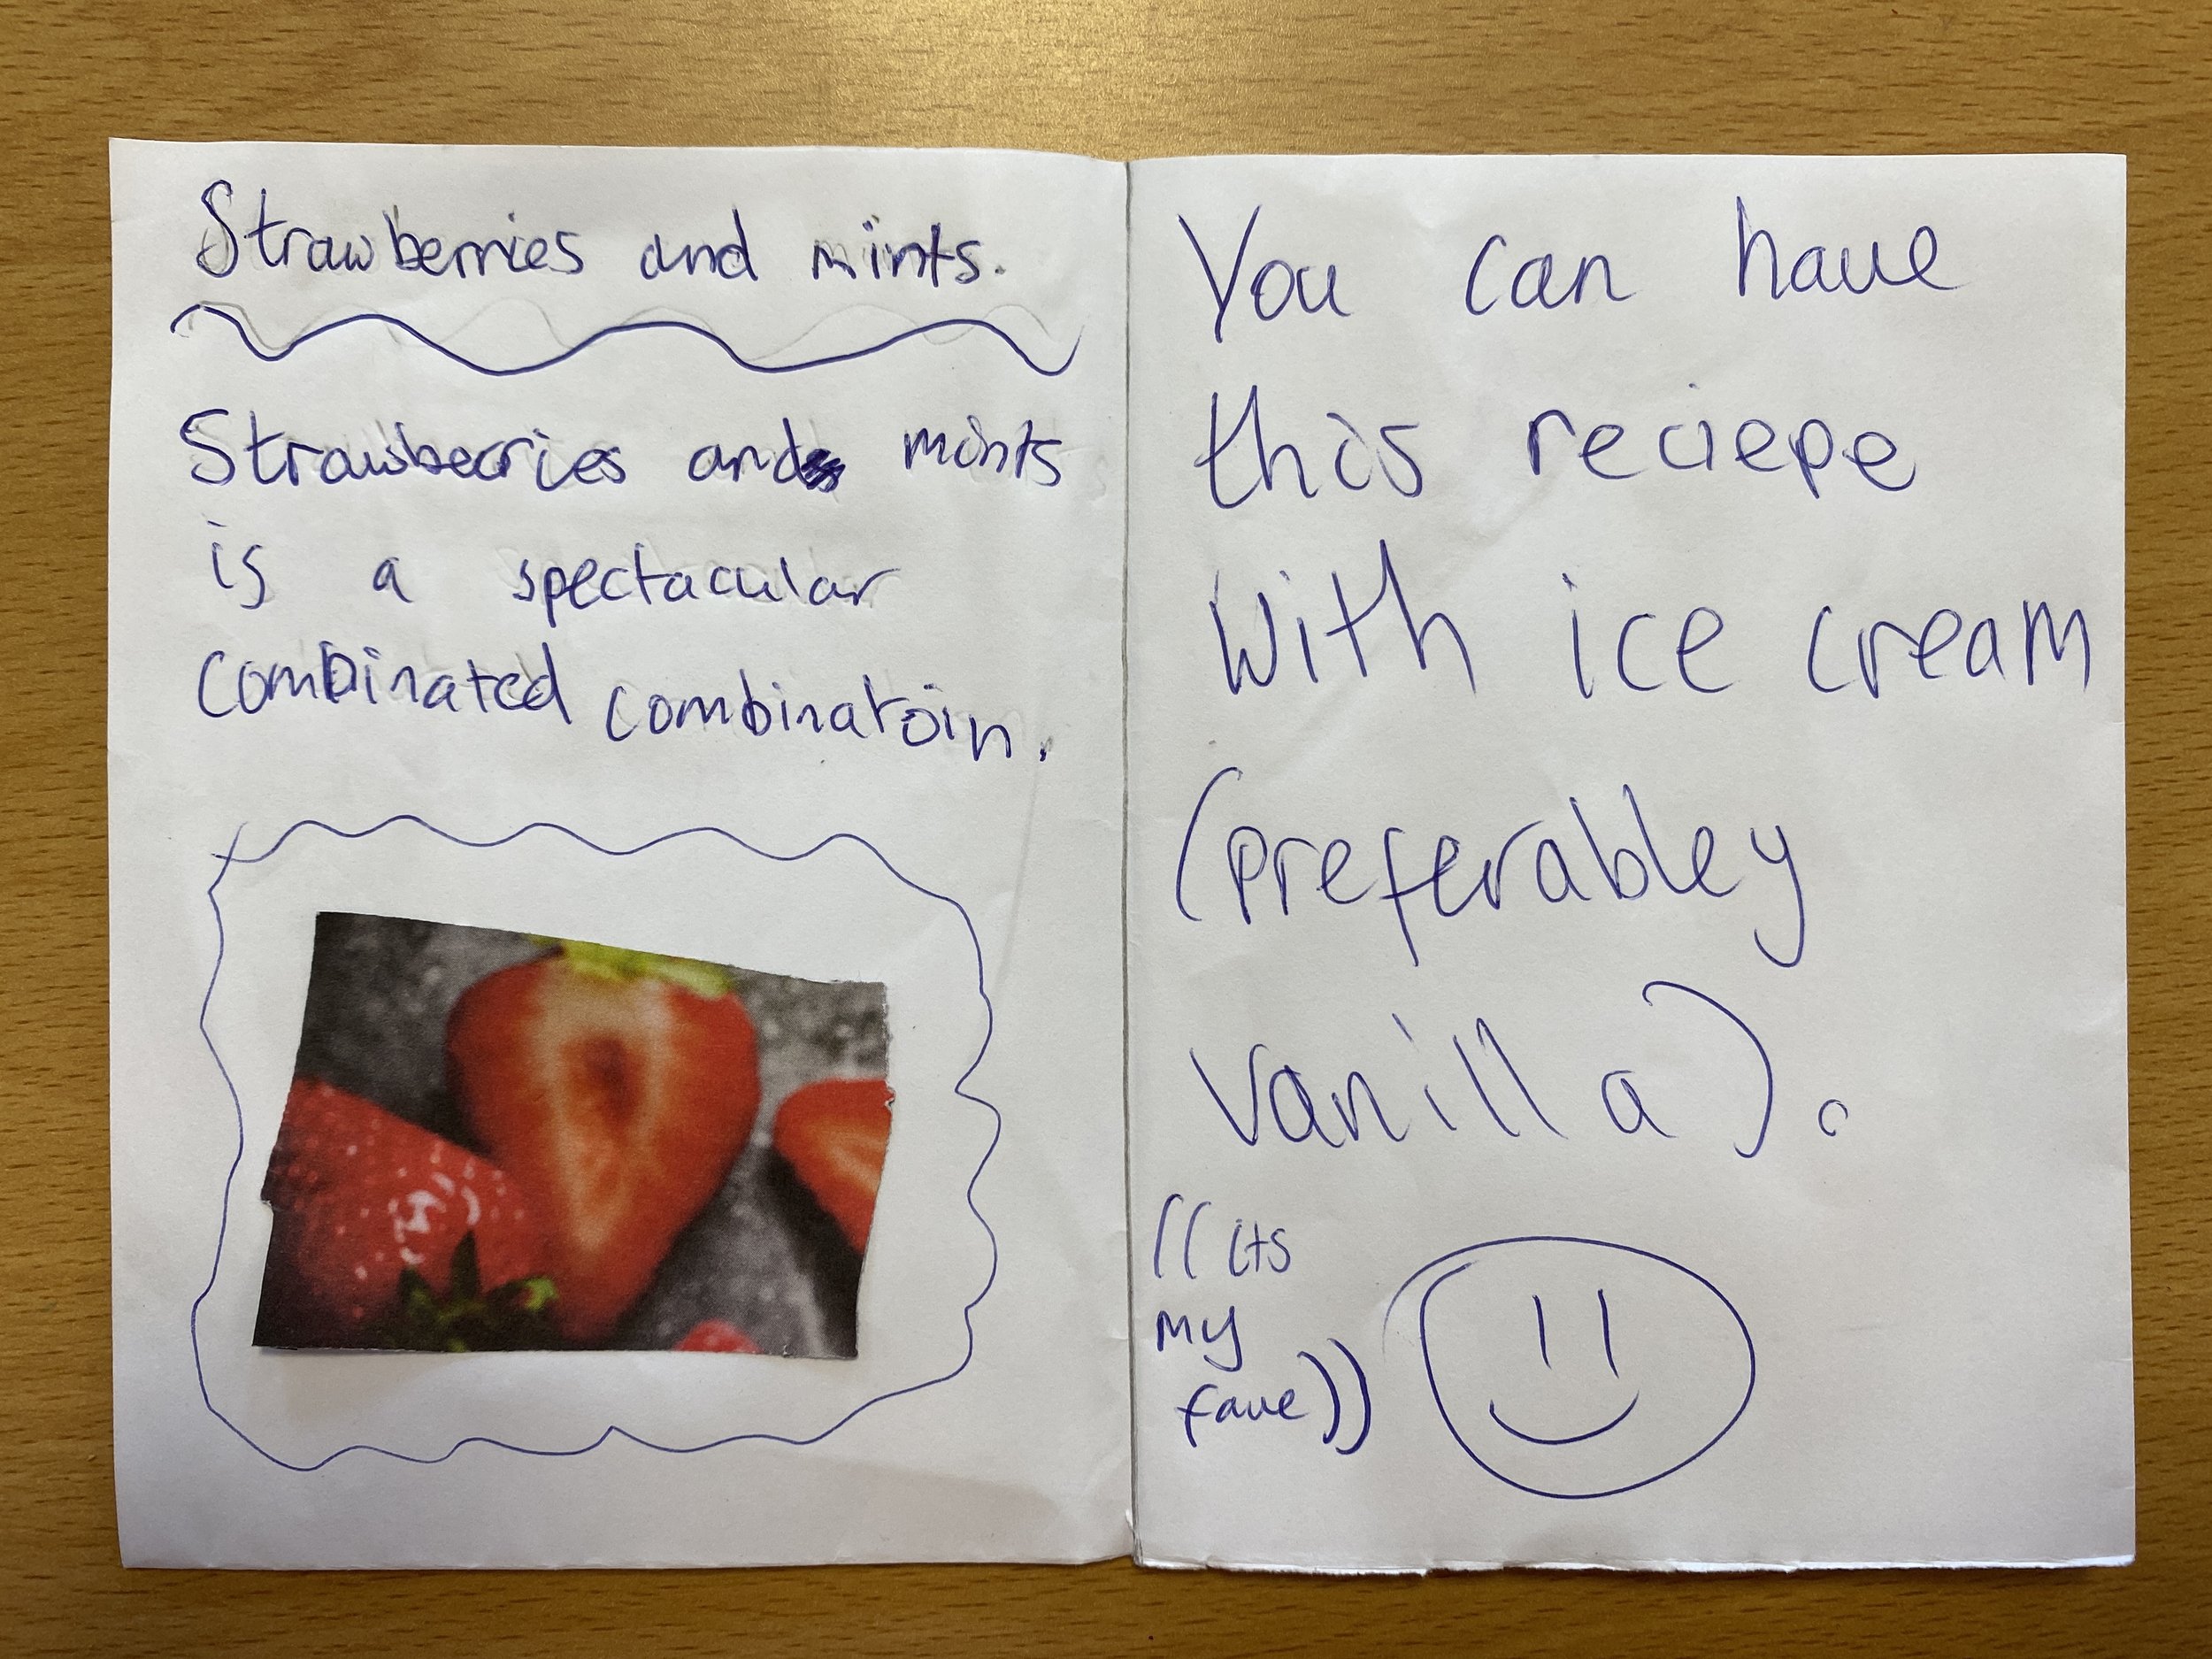 Strawberries and mints.
Strawberries and mints
is a spectacular
combinated combinatoin.
You can have
this reciepe
with ice cream
(preferabley
vanilla).
((its
my
fave))